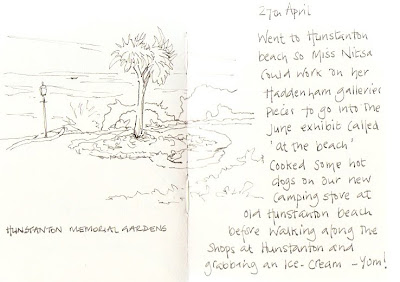 27th April
Went to Hunstanton
beach so Miss Nitsa
Could work on her
Haddenham galleries
pieces to go into the
June exhibit called
'at the beach'
Cooked some hot
dogs on our new
camping stove at
old Hunstanton beach
before walking along the
shops at Hunstanton and
grabbing an Ice-Cream - Yum!
HUNSTANTON MEMORIAL GARDENS